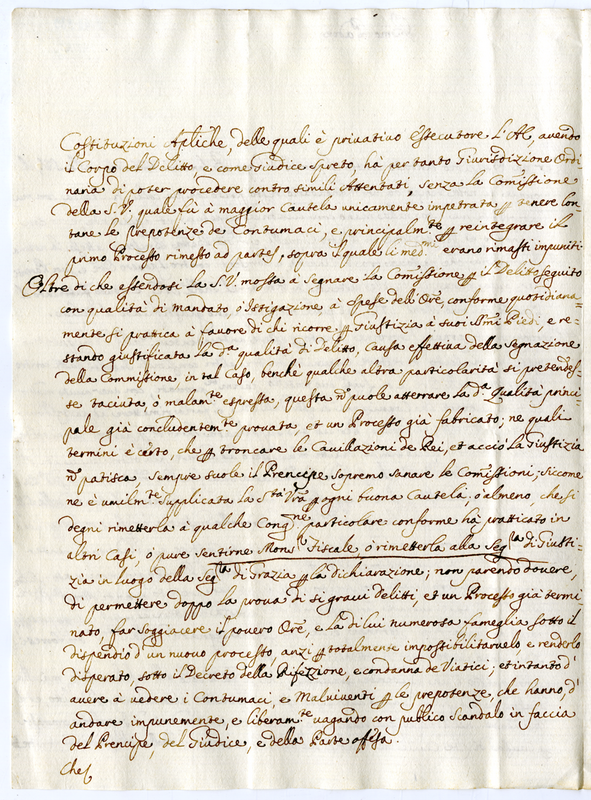 Costituzioni Apliche, delle quali è privativo essecutore L'Al, avendo
il Corpo del Delitto, e come Giudice spreto hà per tanto Giurisdizione Ordi-
naria di poter procedere contro simili Attentati, senza La Commissione
della S.V. quale fù à maggior Cautela unicamente impetrata ꝑ tenere lon-
tane le Prepotenze de Contumaci, e principalmte ꝑ reintegrare il
primo Processo rimesso ad partes, sopra il quale li medmi erano rimasti impuniti.
Oltre di che essendosi La S.V. mossa à segnare La Comissione ꝑ il Delitto seguito
con qualità di Mandato, ò Istigazione à spese dell'Ore, conforme quotidiana-
mente si prattica à favore di chi ricorre ꝑ Giustizia à suoi SSmi Piedi, e re-
stando giustificata La da qualità di Delitto, Causa effettiva della Segnazione
della Commissione, in tal Caso, benchè qualche altra particolarità si pretendes-
se taciuta, ò malamte espressa, questa nō puole atterrare La da Qualità princi-
pale già concludentemte provata, et un Processo già fabricato; ne quali
termini è certo, che ꝑ troncare le Cavillazioni de Rei, et acciò La Giustizia
nō patisca, sempre suole il Prencipe sopremo sanare le Comissioni; siccome
ne è umilmte supplicata La Sta Vra ꝑ ogni buona Cautela. ò almeno che si
degni rimetterla à qualche Congne particolare conforme hà pratticato in
altri Casi, ò pure sentirne Monsr Fiscale, ò rimetterla alla Segta di Giusti-
zia in luogo della Segta di Grazia ꝑ La dichiarazione; non parendo dovere,
di permettere doppo La prova di si gravi delitti, et un Processo già termi
nato, far soggiacere il povero Ore, e La di lui numerosa fameglia sotto il
dispendio d'un nuovo processo, anzi ꝑ totalmente impossibilitarvelo e renderlo
disperato, sotto il Decreto della Rifezzione, e condanna de Viatici; et intanto d'
avere à vedere i Contumaci, e Malviventi ꝑ le prepotenze, che hanno, d'
andare impunemente, e liberamte vagando con publico scandalo in faccia
del Prencipe, del Giudice, e della Parte offesa.
Che